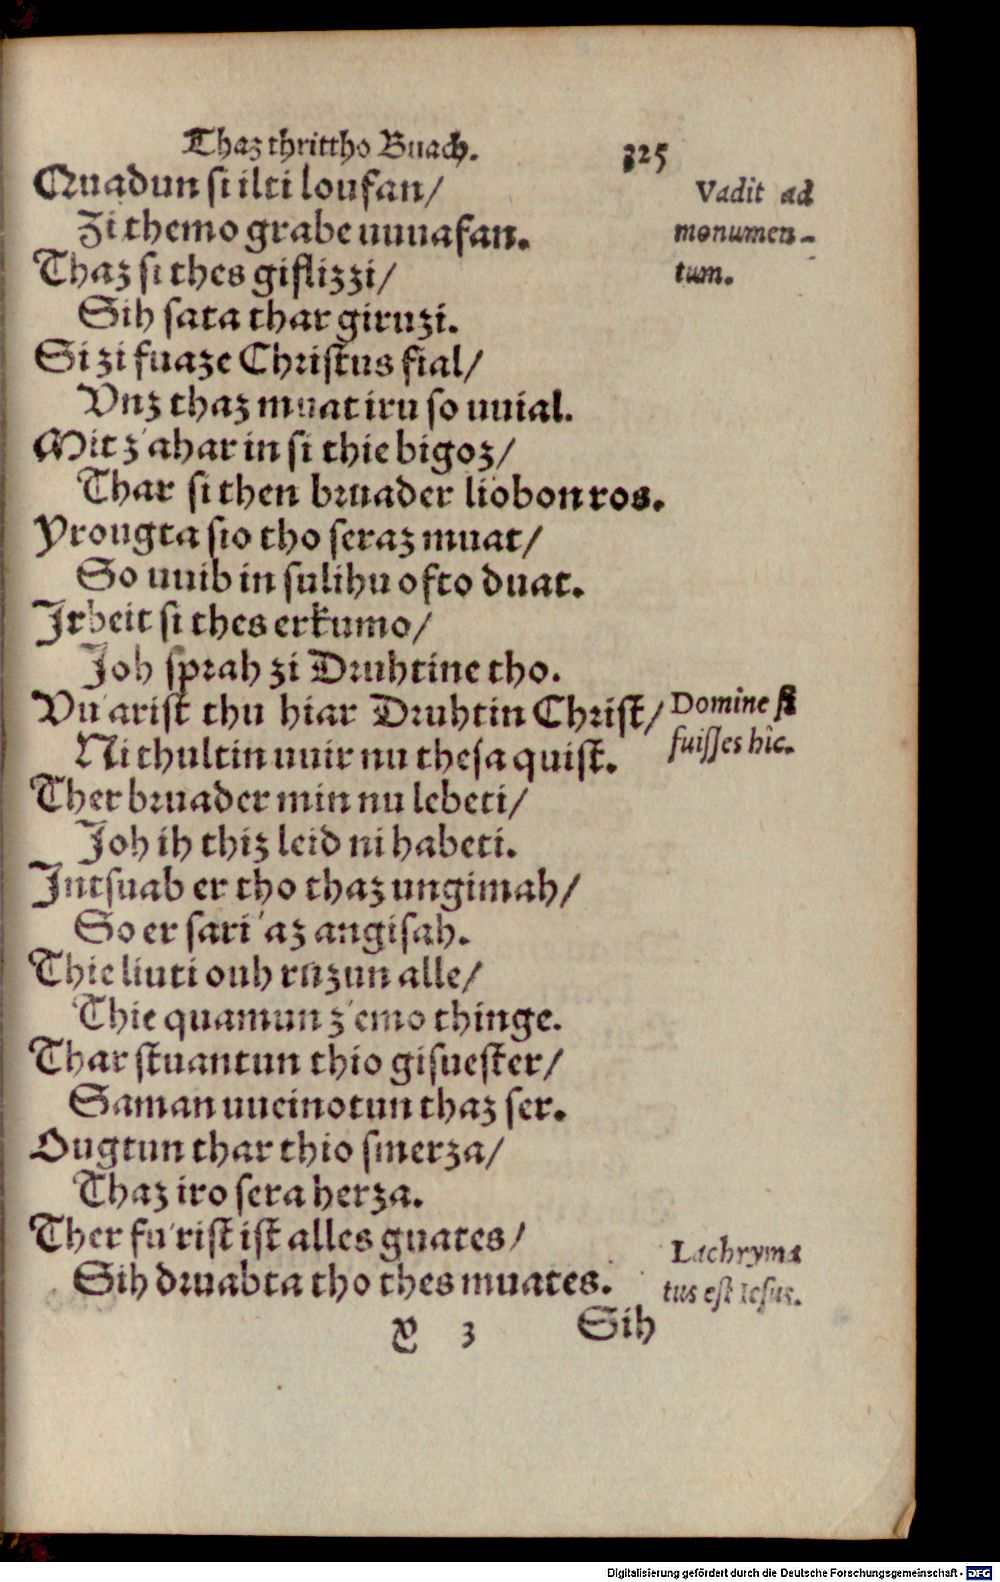 Thaz thrittho Buach. 325
Quadun si ilti loufan/
Vadit ad
Zi themo grabe uuuafan.
monumen-
Thaz si thes giflizzi/
tum.
Sih sata thar giruzi.
Si zi fuaze Christus fial/
Vnz thaz muat iru so uuial.
Mit z'ahar in si thie bigoz/
Thar si then bruader liobon ros.
Yrougta sio tho seraz muat/
So uuib in sulihu ofto duat.
Irbeit si thes erkumo/
Joh sprah zi Druhtine tho.
Vu'arist thu hiar Druhtin Christ/
Domine si
Ni thultin uuir nu thesa quist.
fuisses hîc.
Ther bruader min nu lebeti/
Joh ih thiz leid ni habeti.
Intsuab er tho thaz ungimah/
So er sari 'az angisah.
Thie liuti ouh ruzun alle/
Thie quamun z'emo thinge.
Thar stuantun thio gisuester/
Saman uueinotun thaz ser.
Ougtun thar thio smerza/
Thaz iro sera herza.
Ther fu'rist ist alles guates/
Lachryma
Sih druabta tho thes muates.
tus est Iesus.
Y 3 Sih
Digitalisierung gefördert durch die Deutsche Forschungsgemeinschaft - DFG